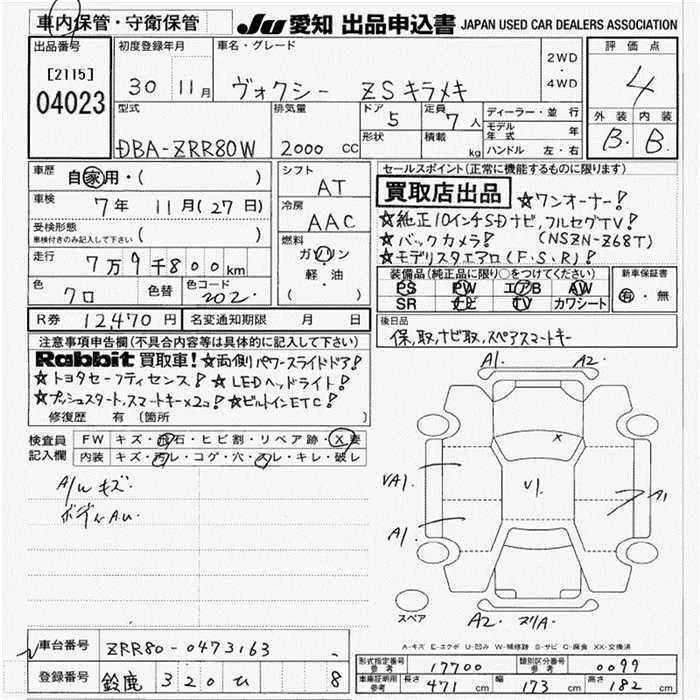 車内保管・守衛保管 JU 愛知 出品申込書 JAPAN USED CAR DEALERS ASSOCIATION
出品番号 初度登録年月 車名・グレード 2WD ・ 4WD 評価点
[2115] 04023 30 11月 ヴォクシー ZS キラメキ 4
型式 排気量 ドア 5 定員 7人 ディーラー・並行 外装 内装
DBA-ZRR80W 2000 CC 形状 積載 kg モデル年式 年 B. B.
ハンドル 左・右
車歴 自家用・( ) シフト AT セールスポイント(正常に機能するものに限ります)
車検 7年 11月(27日) 冷房 AAC 買取店出品 ☆ワンオーナー!
受検形態 車検付きのみ記入して下さい ( ) ☆純正10インチSDナビ,フルセグTV!
走行 7万9千800km 燃料 ガソリン 軽・油 ( ) ☆バックカメラ! (NSZN-Z68T)
☆モデリスタエアロ(F・S・R)!
色 クロ 色替 色コード 202. 装備品(純正品に限り○をつけてください) 新車保証書
PS PW エアB AW 有・無
SR ナビ TV カワシート
R券 12,470円 名変通知期限 月 日 後日品
保,取,ナビ取,スペアスマートキー
注意事項申告欄(不具合内容等は具体的に記入して下さい)
Rabbit 買取車! ☆両側パワースライドドア!
☆トヨタセーフティセンス! ☆LEDヘッドライト!
☆プッシュスタート,スマートキー×2コ! ☆ビルトインETC!
修復歴 有 [箇所
検査員記入欄 FW キズ・飛石・ヒビ割・リペア跡・X要
内装 キズ・汚レ・コゲ・穴・スレ・キレ・破レ
A/W キズ
ボディA.U.
A1. A2.
X
VA1. V1. A1
A1.
スペア A2.
A-キズ E-エクボ U-凹み W-補修跡 S-サビ C-腐食 XX-交換済
車台番号 ZRR80-0473163
登録番号 鈴鹿 320 ひ 8
形式指定番号 参考 17700 類別区分番号 参考 0099
車庫証明用 参考 長さ 471cm 幅 173cm 高さ 182cm